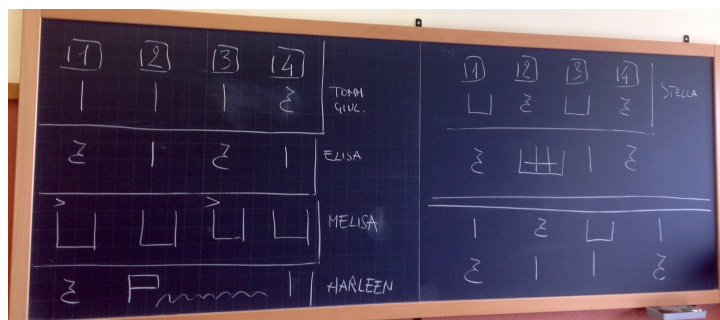 1 2 3 4
TOMM.
GIUL.
ELISA
MELISA
HARLEEN
1 2 3 4
STELLA